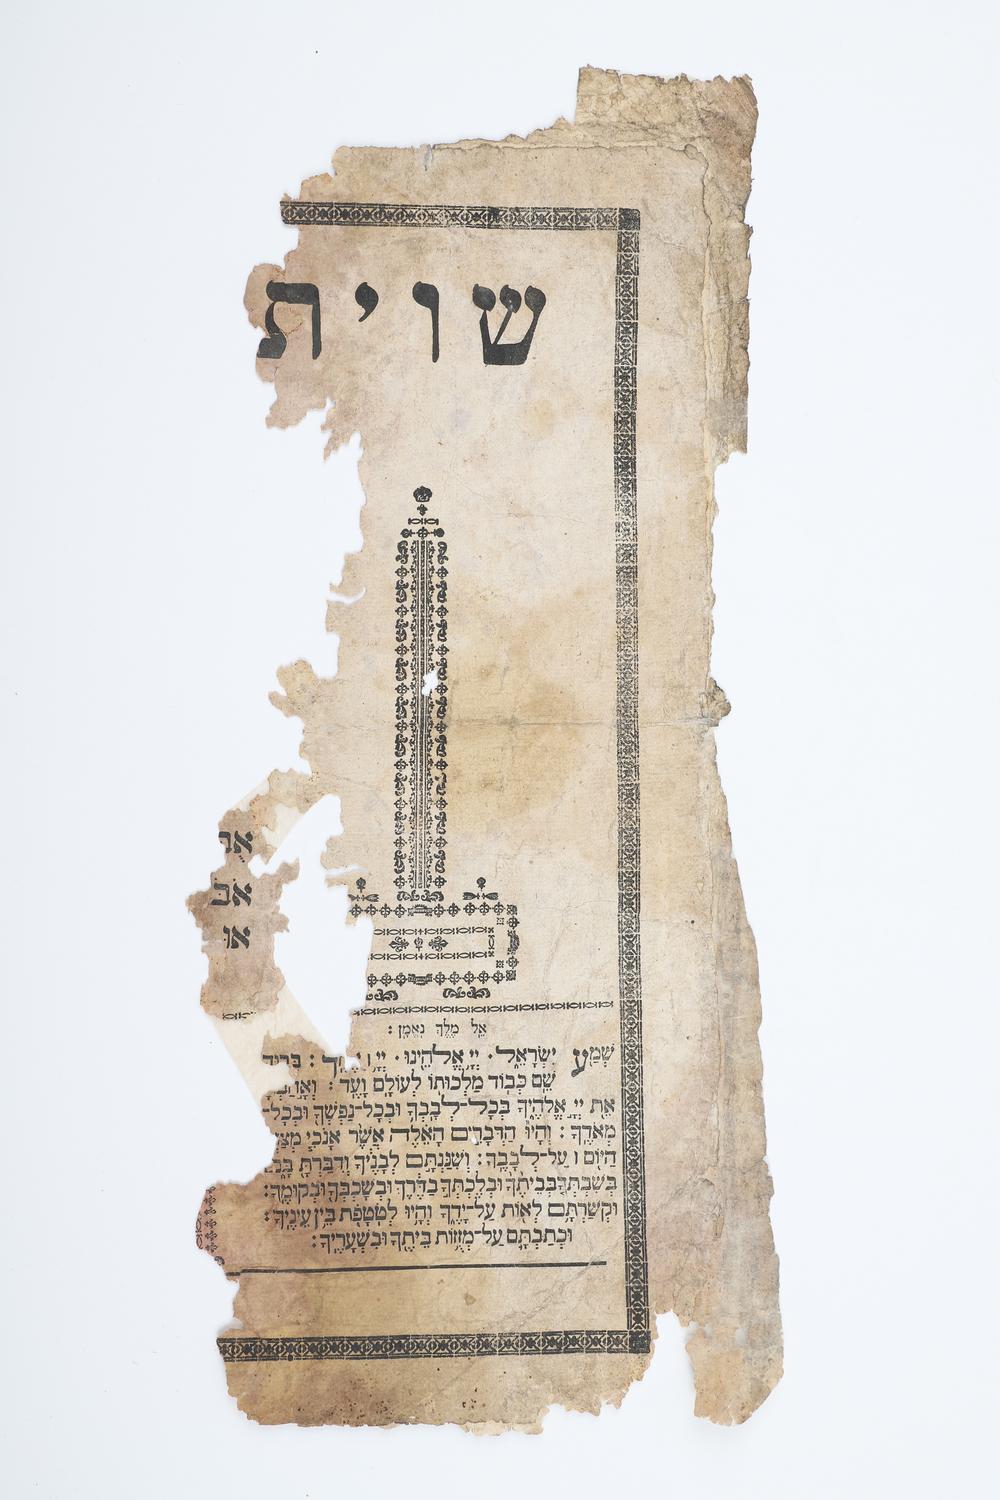 שוית
אל מלך נאמן :
שְׁמַע יִשְׂרָאֵל · יְיָ אֱלֹהֵינוּ · יְיָ
שֵׁם כְּבוֹד מַלְכוּתוֹ לְעוֹלָם וָעֶד :
אֵת יְיָ אֱלֹהֶיךָ בְּכָל־לְבָבְךָ וּבְכָל־נַפְשְׁךָ וּבְכָל־
מְאֹדֶךָ : וְהָיוּ הַדְּבָרִים הָאֵלֶּה אֲשֶׁר אָנֹכִי
הַיּוֹם ׀ עַל־לְבָבֶךָ : וְשִׁנַּנְתָּם לְבָנֶיךָ וְדִבַּרְתָּ
בְּשִׁבְתְּךָ בְּבֵיתֶךָ וּבְלֶכְתְּךָ בַדֶּרֶךְ וּבְשָׁכְבְּךָ וּבְקוּמֶךָ :
וּקְשַׁרְתָּם לְאוֹת עַל־יָדֶךָ וְהָיוּ לְטֹטָפֹת בֵּין עֵינֶיךָ :
וּכְתַבְתָּם עַל־מְזֻזוֹת בֵּיתֶךָ וּבִשְׁעָרֶיךָ :